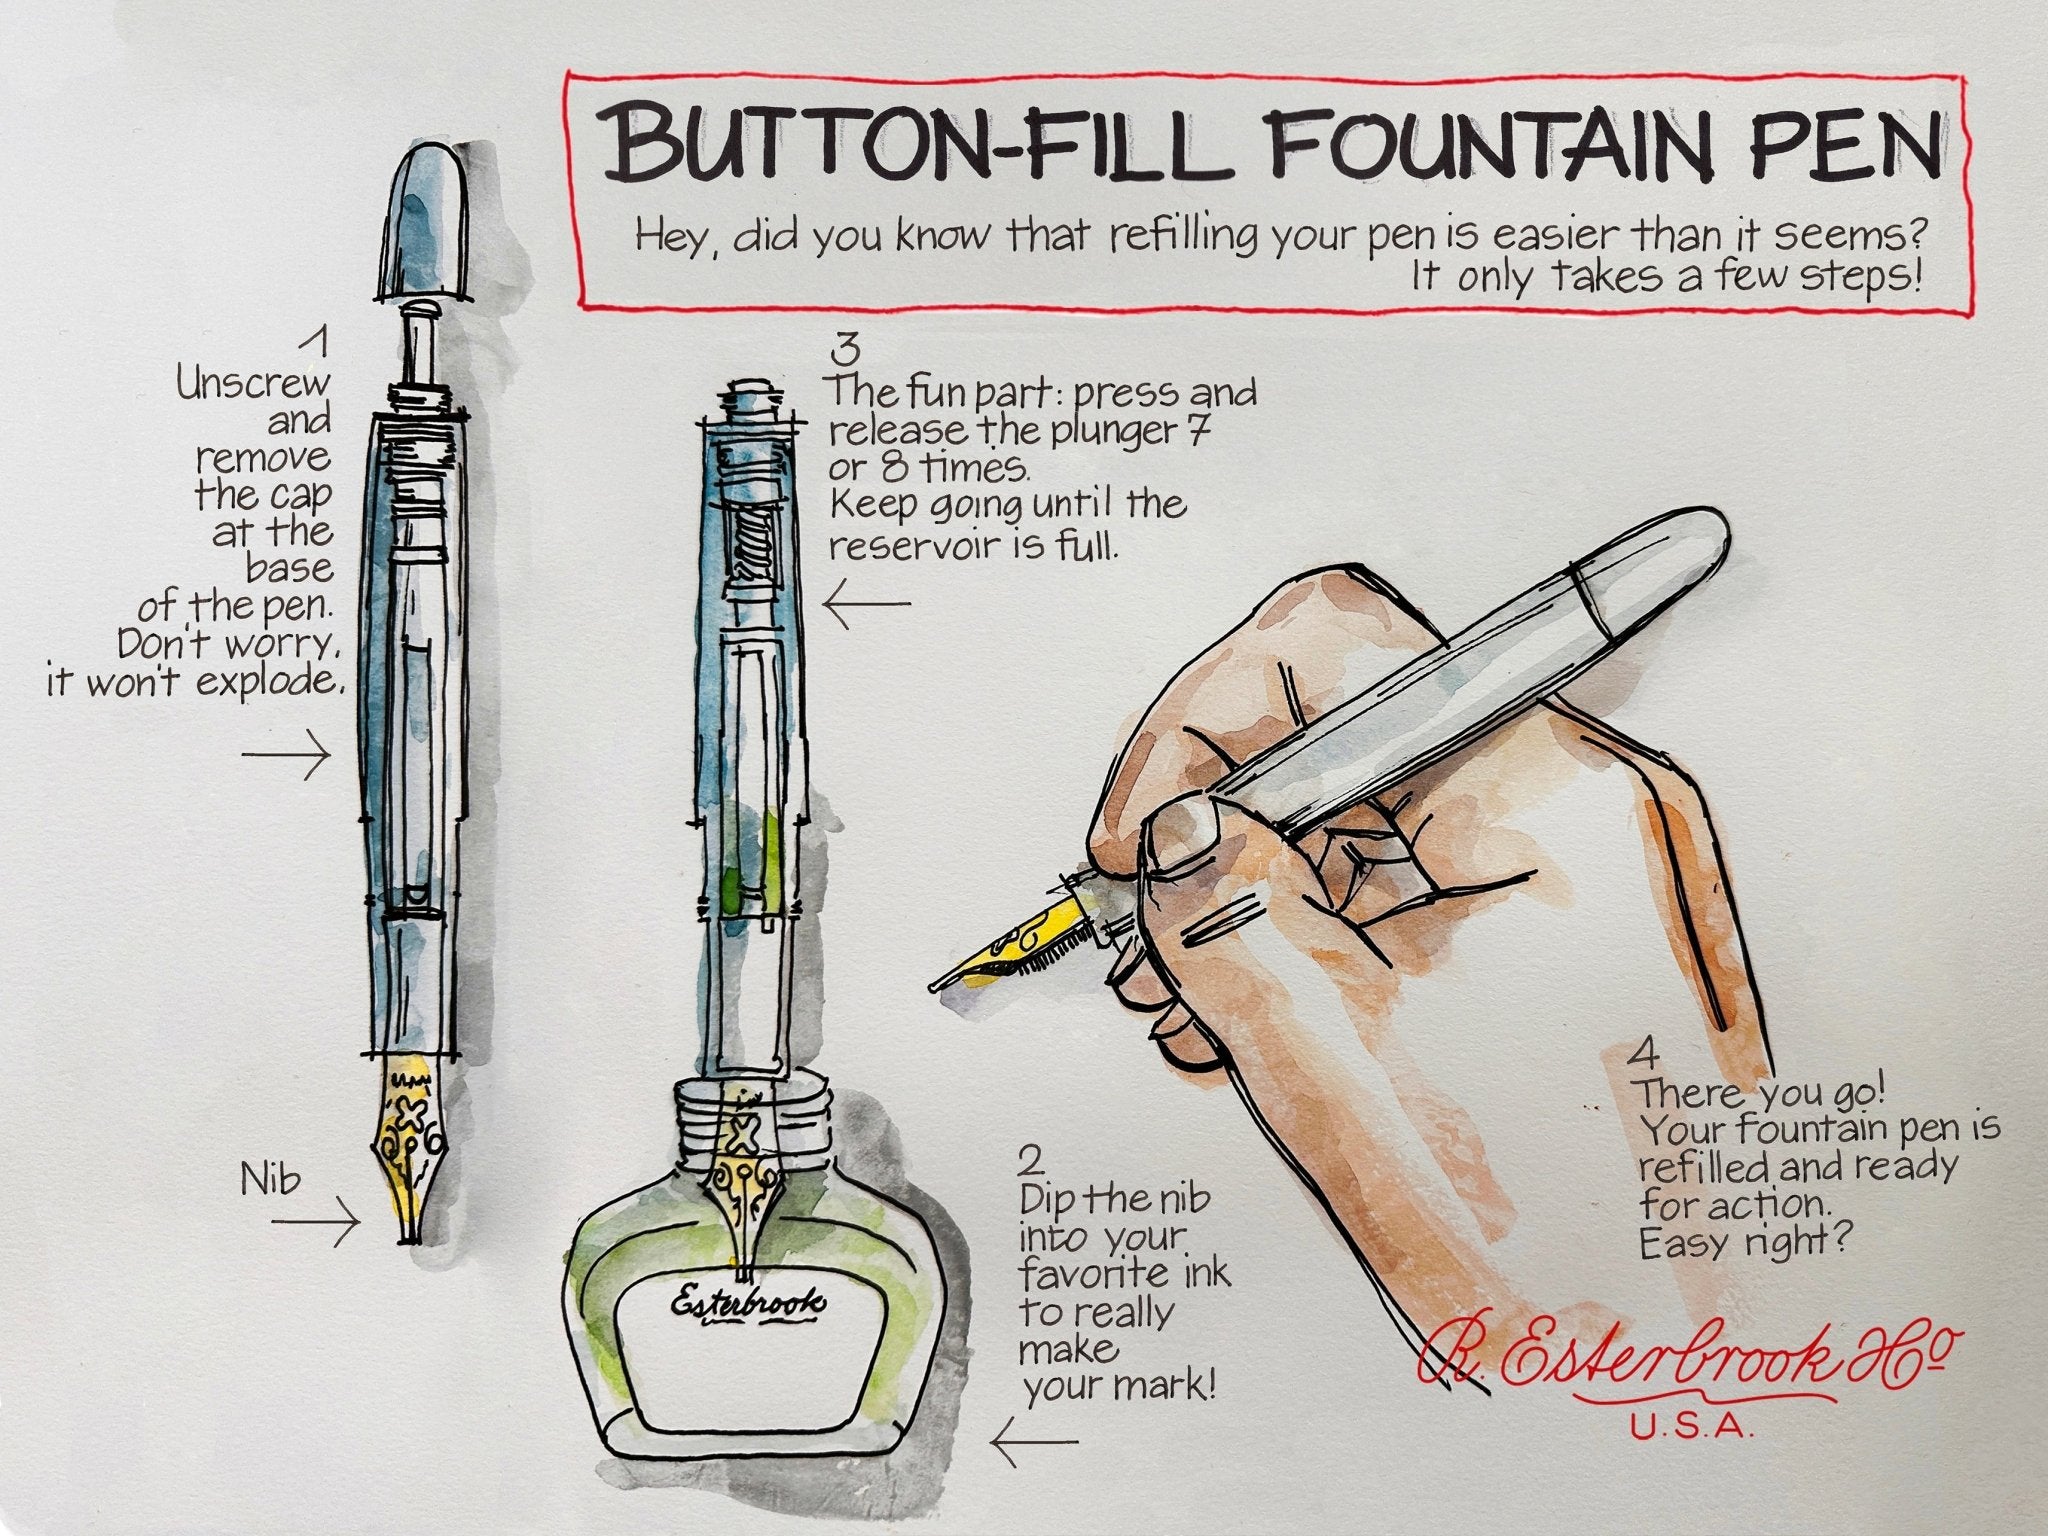 BUTTON-FILL FOUNTAIN PEN
Hey, did you know that refilling your pen is easier than it seems?
It only takes a few steps!
1
Unscrew
and
remove
the cap
at the
base
of the pen.
Don't worry,
it won't explode.
Nib
2
Dip the nib
into your
favorite ink
to really
make
your mark!
Esterbrook
3
The fun part: press and
release the plunger 7
or 8 times.
Keep going until the
reservoir is full.
4
There you go!
Your fountain pen is
refilled and ready
for action.
Easy right?
R. Esterbrook & Co
U.S.A.